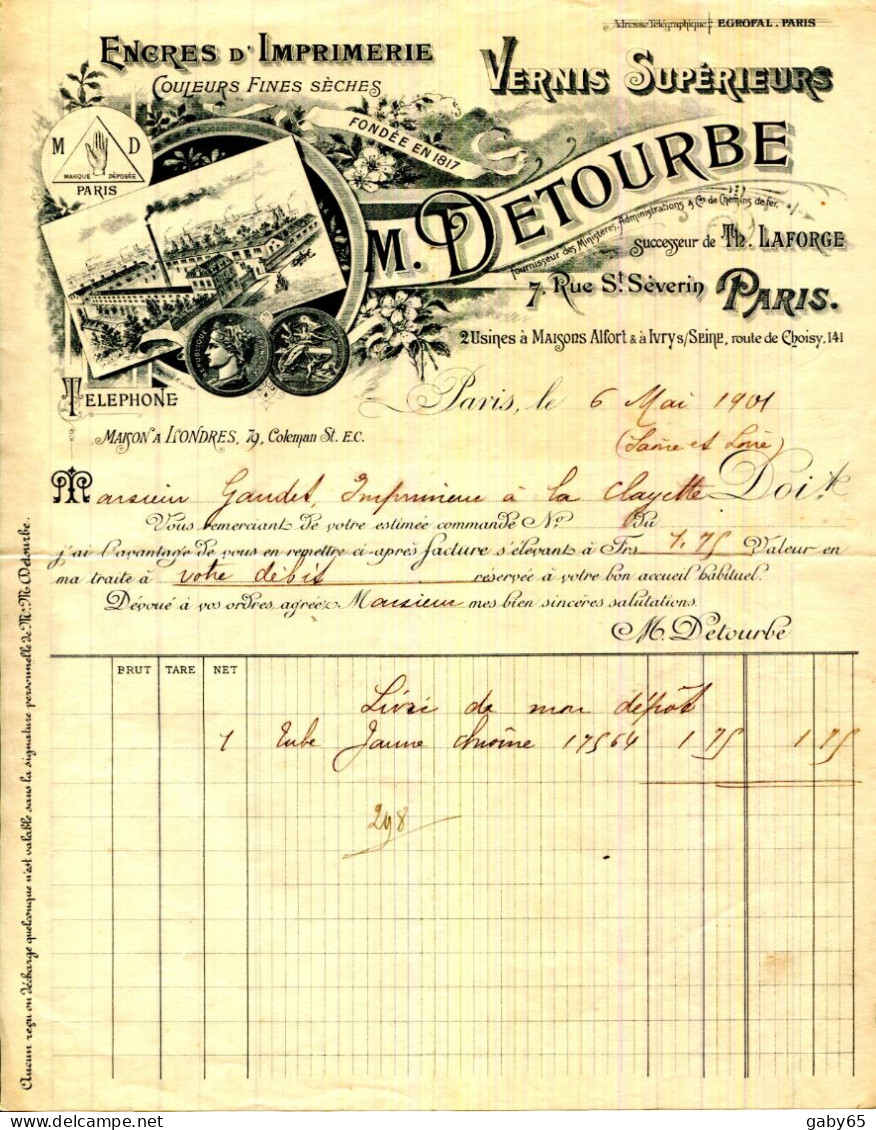 Adresse Télégraphique: EGROFAL. PARIS
ENCRES D'IMPRIMERIE
COULEURS FINES SÈCHES
VERNIS SUPÉRIEURS
FONDÉE EN 1817
M D
MARQUE DÉPOSÉE
PARIS
M. DETOURBE
Fournisseur des Ministères, Administrations & Cies de Chemins de fer.
Successeur de Th. LAFORGE
7, Rue St. Séverin PARIS.
2 Usines à MAISONS Alfort & à IVRY s/SEINE, route de Choisy, 141
RÉPUBLIQUE
TELEPHONE
MAISON A LONDRES, 79, Coleman St. E.C.
Paris, le 6 Mai 1901
(Saône et Loire)
Monsieur Gaudet, Imprimeur à la Clayette Doit
Vous remerciant de votre estimée commande No. du
j'ai l'avantage de vous en remettre ci-après facture s'élevant à Frs 1.75 Valeur en
ma traite à votre débit réservée à votre bon accueil habituel.
Dévoué à vos ordres agréez Monsieur mes bien sincères salutations.
M. Detourbe
BRUT TARE NET
Livré de mon dépôt
1 tube Jaune chrome 17564 1 75 1 75
298
Aucun reçu ou décharge quelconque n'est valable sans la signature personnelle de Mr. M. Detourbe.
gaby65